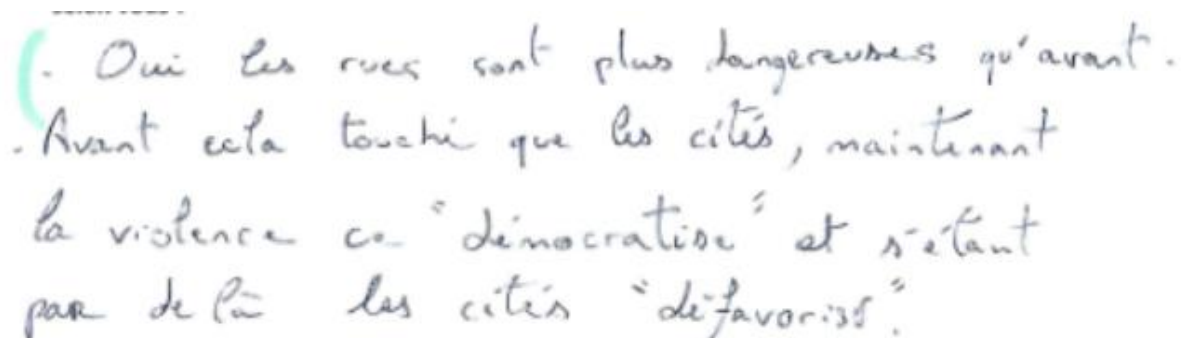 . Oui les rues sont plus dangereuses qu'avant.
. Avant cela touché que les cités, maintenant
la violence ce "démocratise" et s'étant
par de là les cités "défavoriss".